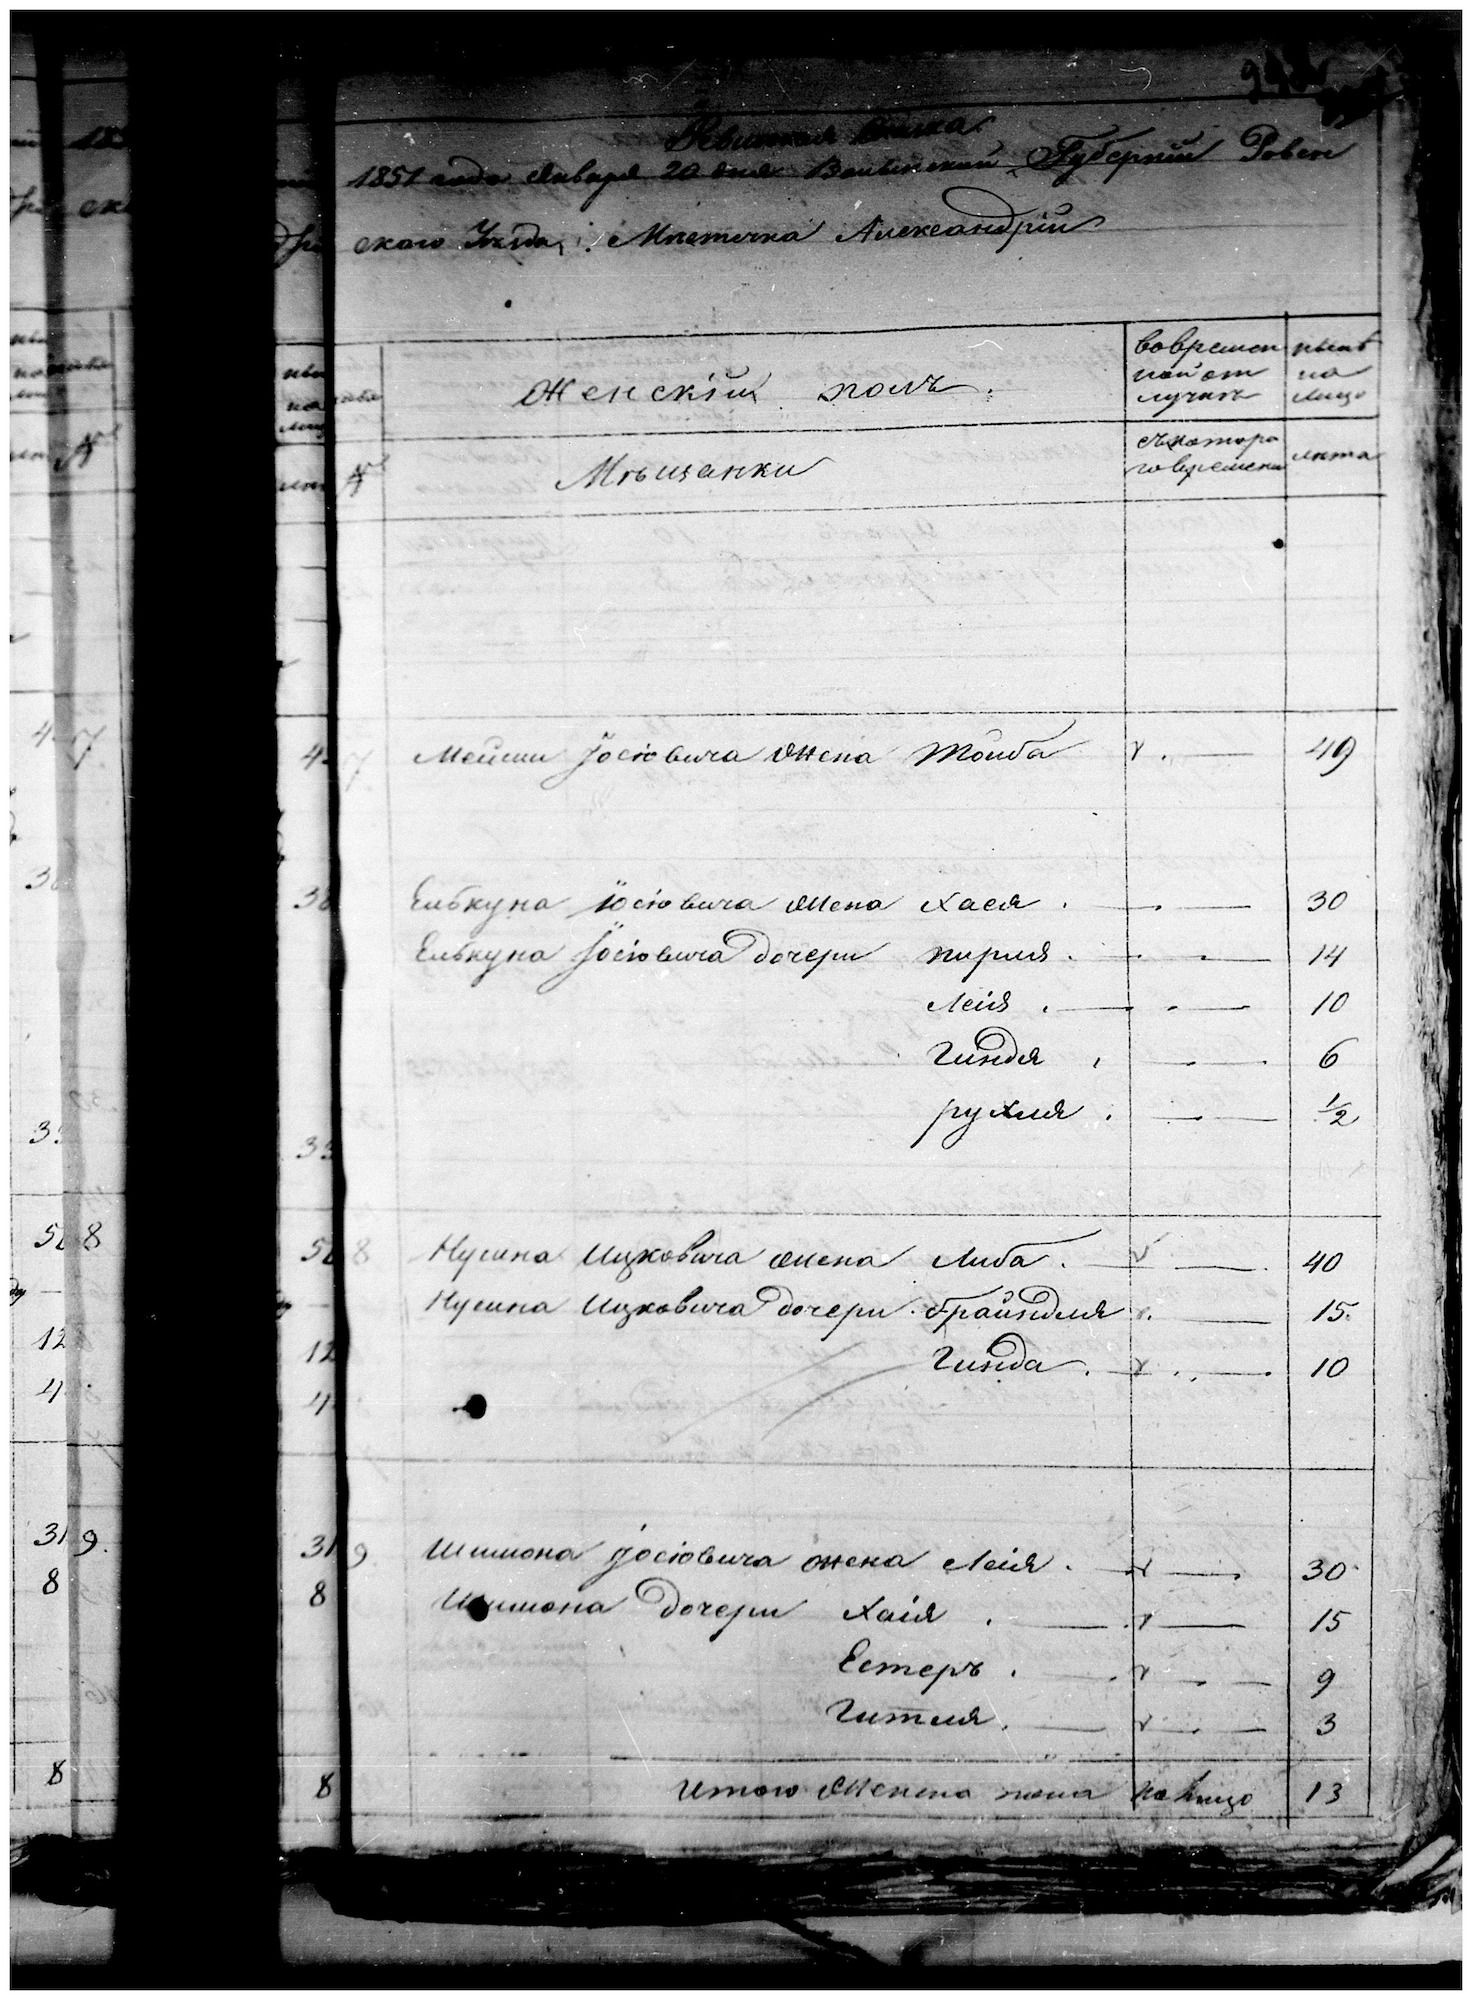 Ревизская сказка
1851 года Января 20 дня Волынской Губернии Ровен
скаго Уезда, Местечка Александрии
Женскій полъ.
вовремен
ной от
лучке
ныне
на
лицо
№
Мещанки
съкотора
говремени
лета
7 Мейши Йосіовича Жена Тойба 49
Елькуна Йосіовича Жена Хася 30
Елькуна Йосіовича Дочери пирля 14
Леія 10
Гиндя 6
рухля ½
8 Нусина Ицковича Жена Либа 40
Нусина Ицковича Дочери Брайндля 15
Гинда 10
9 Шимона Йосіовича жена Леія 30
Шимона Дочери Хаія 15
Естеръ 9
Гитля 3
Итого Женска пола на Лицо 13